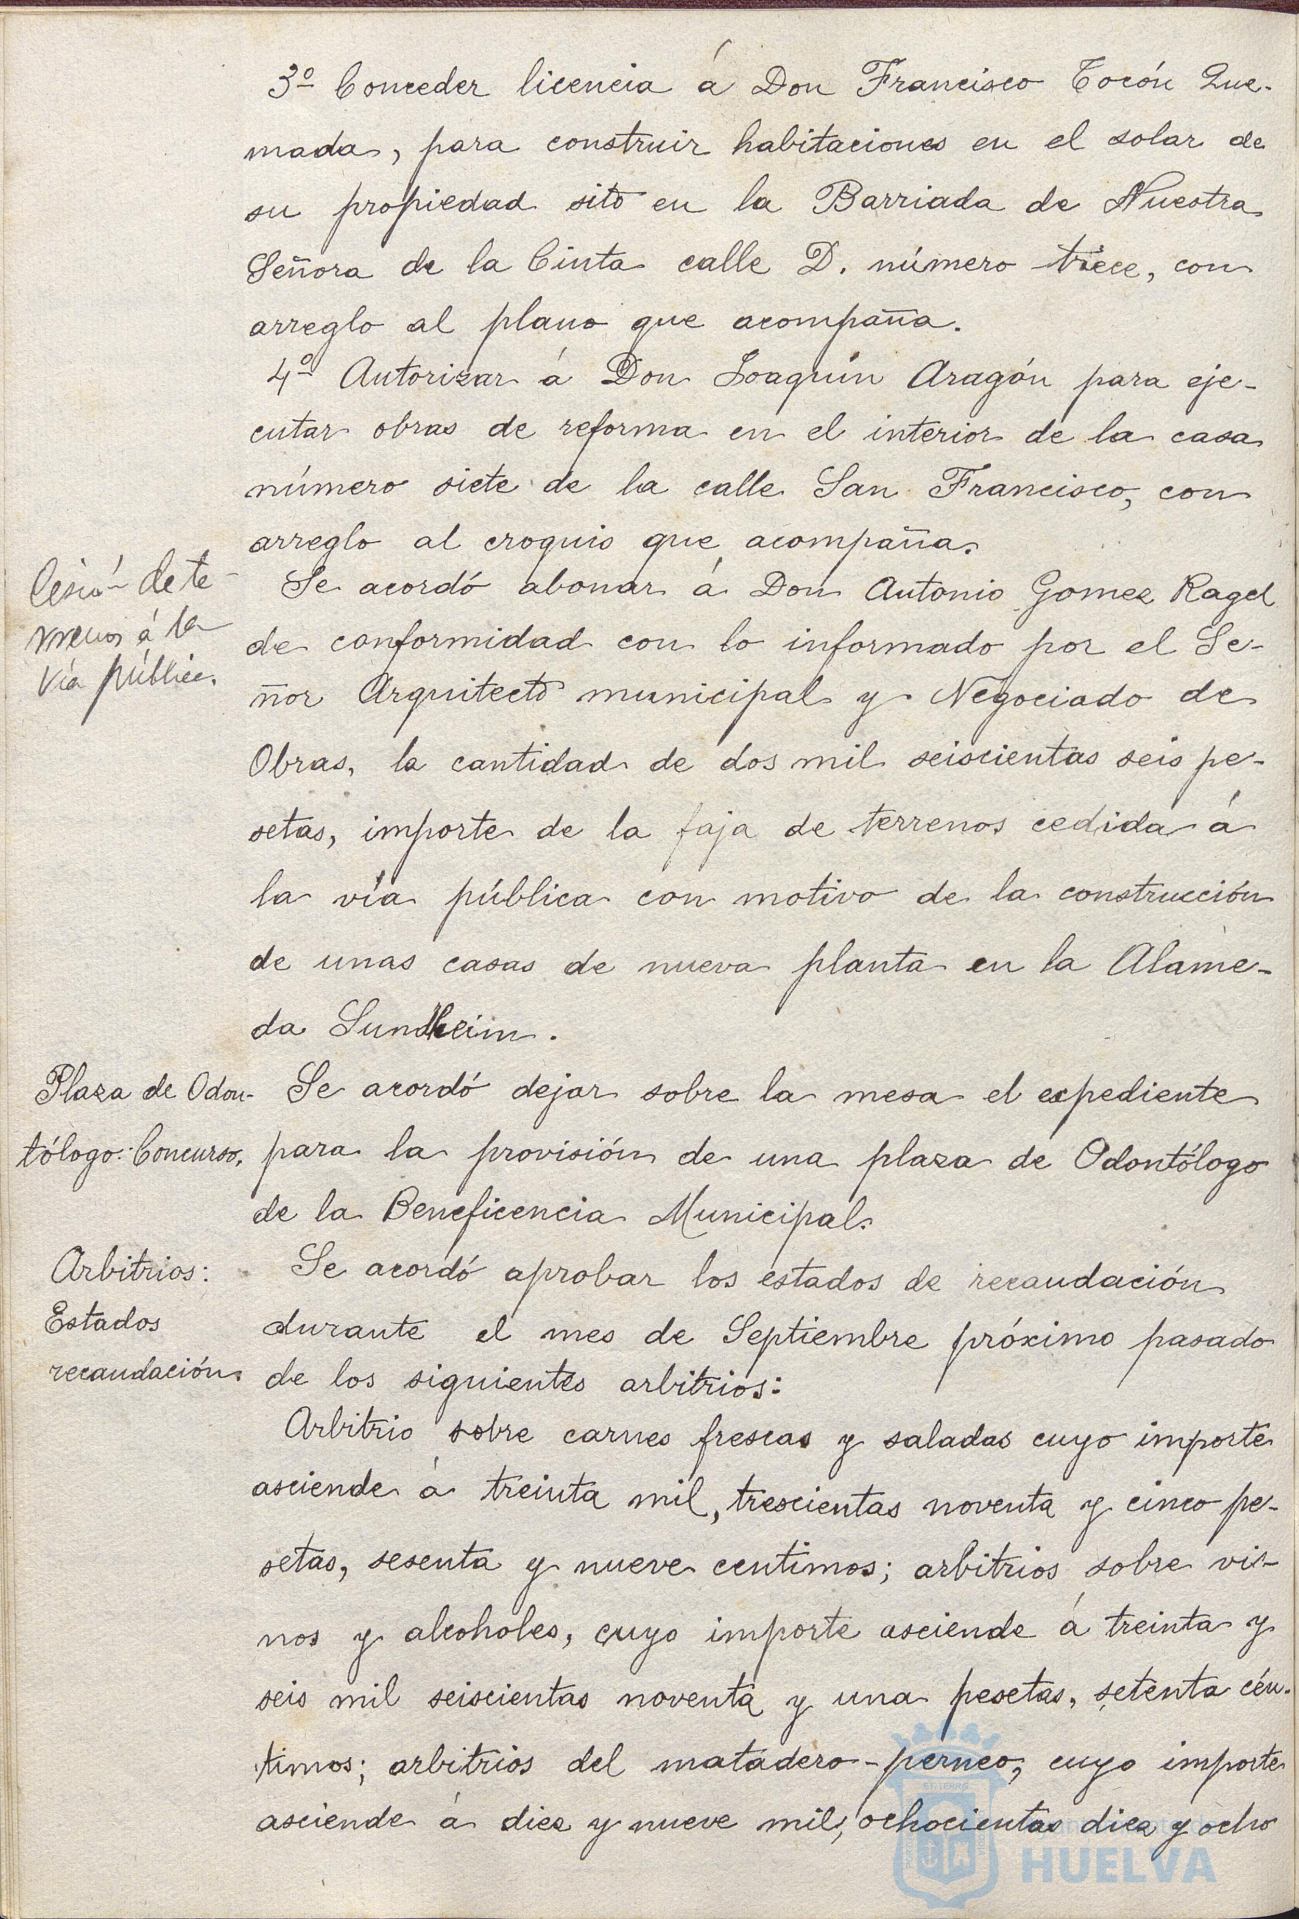 3º Conceder licencia á Don Francisco Tocón Que-
mada, para construir habitaciones en el solar de
su propiedad sito en la Barriada de Nuestra
Señora de la Cinta calle D. número trece, con
arreglo al plano que acompaña.
4º Autorizar á Don Joaquín Aragón para eje-
cutar obras de reforma en el interior de la casa
número siete de la calle San Francisco, con
arreglo al croquis que acompaña.
Cesión de te-
rrenos á la
vía pública.
Se acordó abonar á Don Antonio Gomez Ragel
de conformidad con lo informado por el Se-
ñor Arquitecto municipal y Negociado de
Obras, la cantidad de dos mil seiscientas seis pe-
setas, importe de la faja de terrenos cedida á
la vía pública con motivo de la construcción
de unas casas de nueva planta en la Alame-
da Sundheim.
Plaza de Odon-
tólogo: Concurso.
Se acordó dejar sobre la mesa el expediente
para la provisión de una plaza de Odontólogo
de la Beneficencia Municipal.
Arbitrios:
Estados
recaudación.
Se acordó aprobar los estados de recaudación
durante el mes de Septiembre próximo pasado
de los siguientes arbitrios:
Arbitrio sobre carnes frescas y saladas cuyo importe
asciende á treinta mil, trescientas noventa y cinco pe-
setas, sesenta y nueve centimos; arbitrios sobre vi-
nos y alcoholes, cuyo importe asciende á treinta y
seis mil seiscientas noventa y una pesetas, setenta cén-
timos; arbitrios del matadero-perneo, cuyo importe
asciende á diez y nueve mil, ochocientas diez y ocho
HUELVA